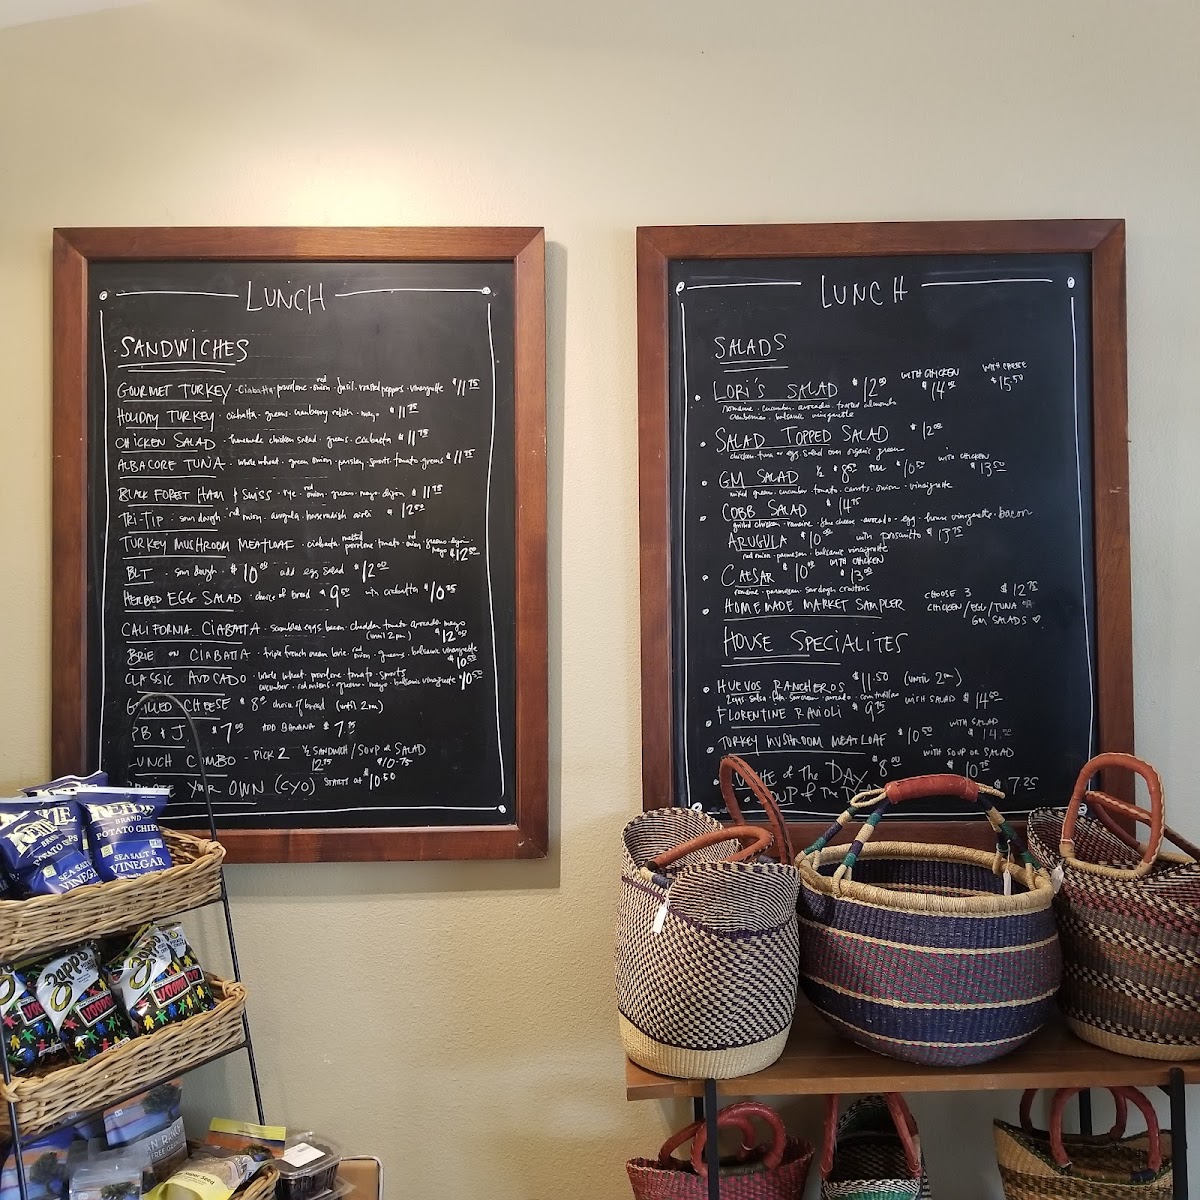 LUNCH
SANDWICHES
GOURMET TURKEY · Ciabatta · provolone · red onion · basil · roasted peppers · vinaigrette $11.75
HOLIDAY TURKEY · ciabatta · greens · cranberry relish · mayo $11.75
CHICKEN SALAD · homemade chicken salad · greens · ciabatta $11.75
ALBACORE TUNA · whole wheat · green onion · parsley · sprouts · tomato greens $11.75
BLACK FOREST HAM & SWISS · rye · red onion · greens · mayo · dijon $11.75
TRI-TIP · sourdough · red onion · arugula · horseradish aioli $12.50
TURKEY MUSHROOM MEATLOAF · ciabatta · melted provolone · tomato · red onion · greens · dijon
mayo $12.50
BLT · sourdough · $10.00 add egg salad $12.00
HERBED EGG SALAD · choice of bread $9.50 with ciabatta $10.25
CALIFORNIA CIABATTA · scrambled eggs bacon · cheddar tomato avocado mayo
(until 2pm) $12.00
BRIE ON CIABATTA · triple french cream brie · red onion · greens · balsamic vinaigrette
$10.50
CLASSIC AVOCADO · whole wheat · provolone · tomato · sprouts
cucumber · red onions · greens · mayo · balsamic vinaigrette $10.50
GRILLED CHEESE $8.00 choice of bread (until 2pm)
PB & J $7.00 ADD BANANA $7.75
LUNCH COMBO - PICK 2 ½ SANDWICH / SOUP or SALAD
12.75 $10.75
YOUR OWN (CYO) STARTS at $10.50
LUNCH
SALADS
LORI'S SALAD $12.50 WITH CHICKEN $14.50 WITH CHEESE $15.50
romaine · cucumber · avocado · toasted almonds
cranberries · balsamic vinaigrette
SALAD TOPPED SALAD $12.00
chicken · tuna or egg salad over organic greens
GM SALAD ½ $8.50 FULL $10.50 WITH CHICKEN $13.50
mixed greens · cucumber · tomato · carrots · onion · vinaigrette
COBB SALAD $14.75
grilled chicken · romaine · blue cheese · avocado · egg · house vinaigrette · bacon
ARUGULA $10.50 with prosciutto $13.75
red onion · parmesan · balsamic vinaigrette
CAESAR $10.00 WITH CHICKEN $13.00
romaine · parmesan · sourdough croutons
HOMEMADE MARKET SAMPLER CHOOSE 3 $12.75
CHICKEN/EGG/TUNA OR
GM SALADS
HOUSE SPECIALITES
HUEVOS RANCHEROS $11.50 (UNTIL 2pm)
2 eggs · salsa · feta · sour cream · avocado · corn tortillas
FLORENTINE RAVIOLI $9.75 WITH SALAD $14.00
TURKEY MUSHROOM MEATLOAF $10.50 WITH SALAD $14.50
OF THE DAY $8.00 WITH SOUP OR SALAD $10.75
SOUP OF THE $7.25
KETTLE
BRAND
POTATO CHIPS
SEA SALT &
VINEGAR
Zapp's
VOODOO